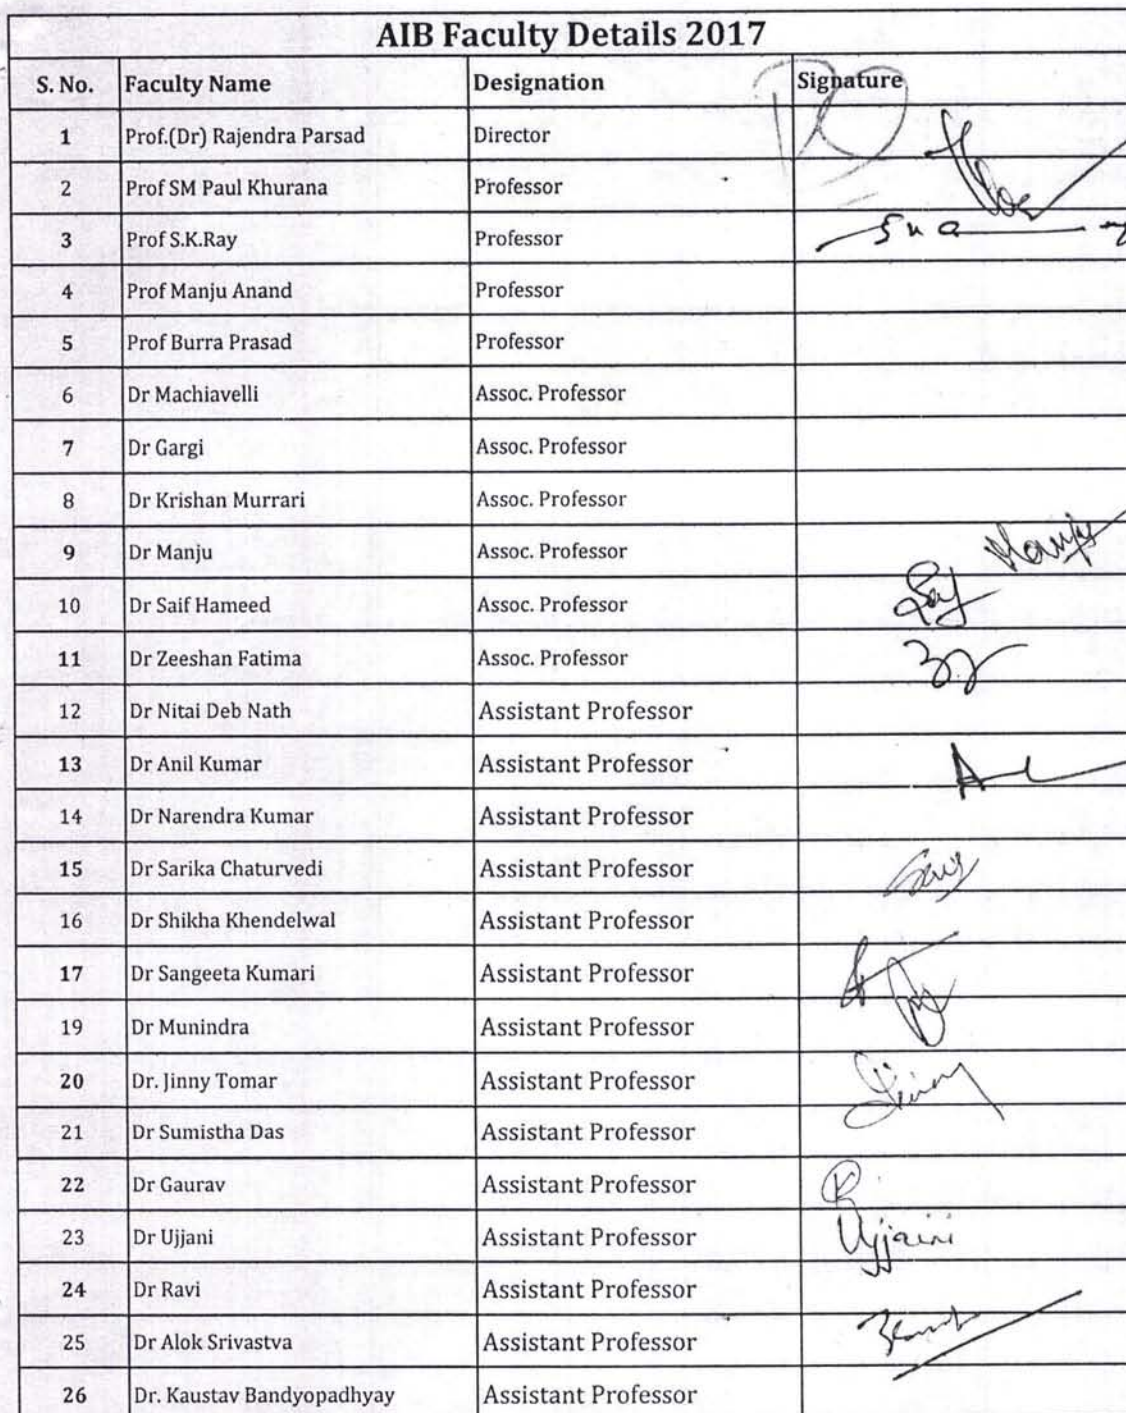 AIB Faculty Details 2017
S. No. Faculty Name Designation Signature
1 Prof.(Dr) Rajendra Parsad Director
2 Prof SM Paul Khurana Professor
3 Prof S.K.Ray Professor
4 Prof Manju Anand Professor
5 Prof Burra Prasad Professor
6 Dr Machiavelli Assoc. Professor
7 Dr Gargi Assoc. Professor
8 Dr Krishan Murrari Assoc. Professor
9 Dr Manju Assoc. Professor Manju
10 Dr Saif Hameed Assoc. Professor Saif
11 Dr Zeeshan Fatima Assoc. Professor
12 Dr Nitai Deb Nath Assistant Professor
13 Dr Anil Kumar Assistant Professor
14 Dr Narendra Kumar Assistant Professor
15 Dr Sarika Chaturvedi Assistant Professor
16 Dr Shikha Khendelwal Assistant Professor
17 Dr Sangeeta Kumari Assistant Professor
19 Dr Munindra Assistant Professor
20 Dr. Jinny Tomar Assistant Professor Jinny
21 Dr Sumistha Das Assistant Professor
22 Dr Gaurav Assistant Professor
23 Dr Ujjani Assistant Professor Ujjaini
24 Dr Ravi Assistant Professor
25 Dr Alok Srivastva Assistant Professor
26 Dr. Kaustav Bandyopadhyay Assistant Professor